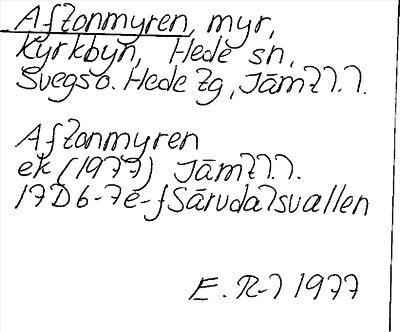 Aftonmyren, myr,
Kyrkbyn, Hede sn,
Svegs o. Hede tg, Jämtl.l.
Aftonmyren
ek (1977) Jämtl.l.
17D 6-7e-f Särvdalsvallen
E. R-l 1977